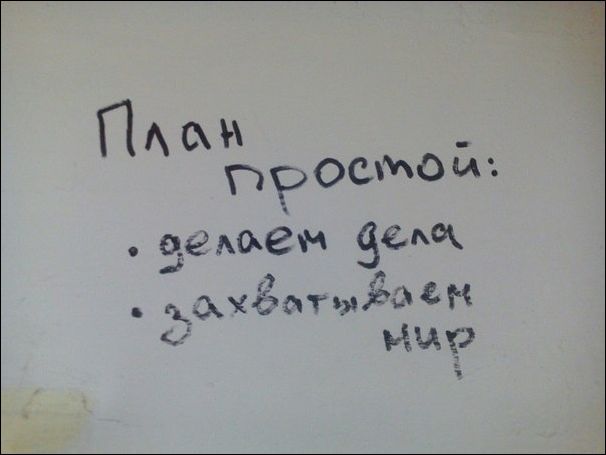 План
простой:
• делаем дела
• захватываем
мир